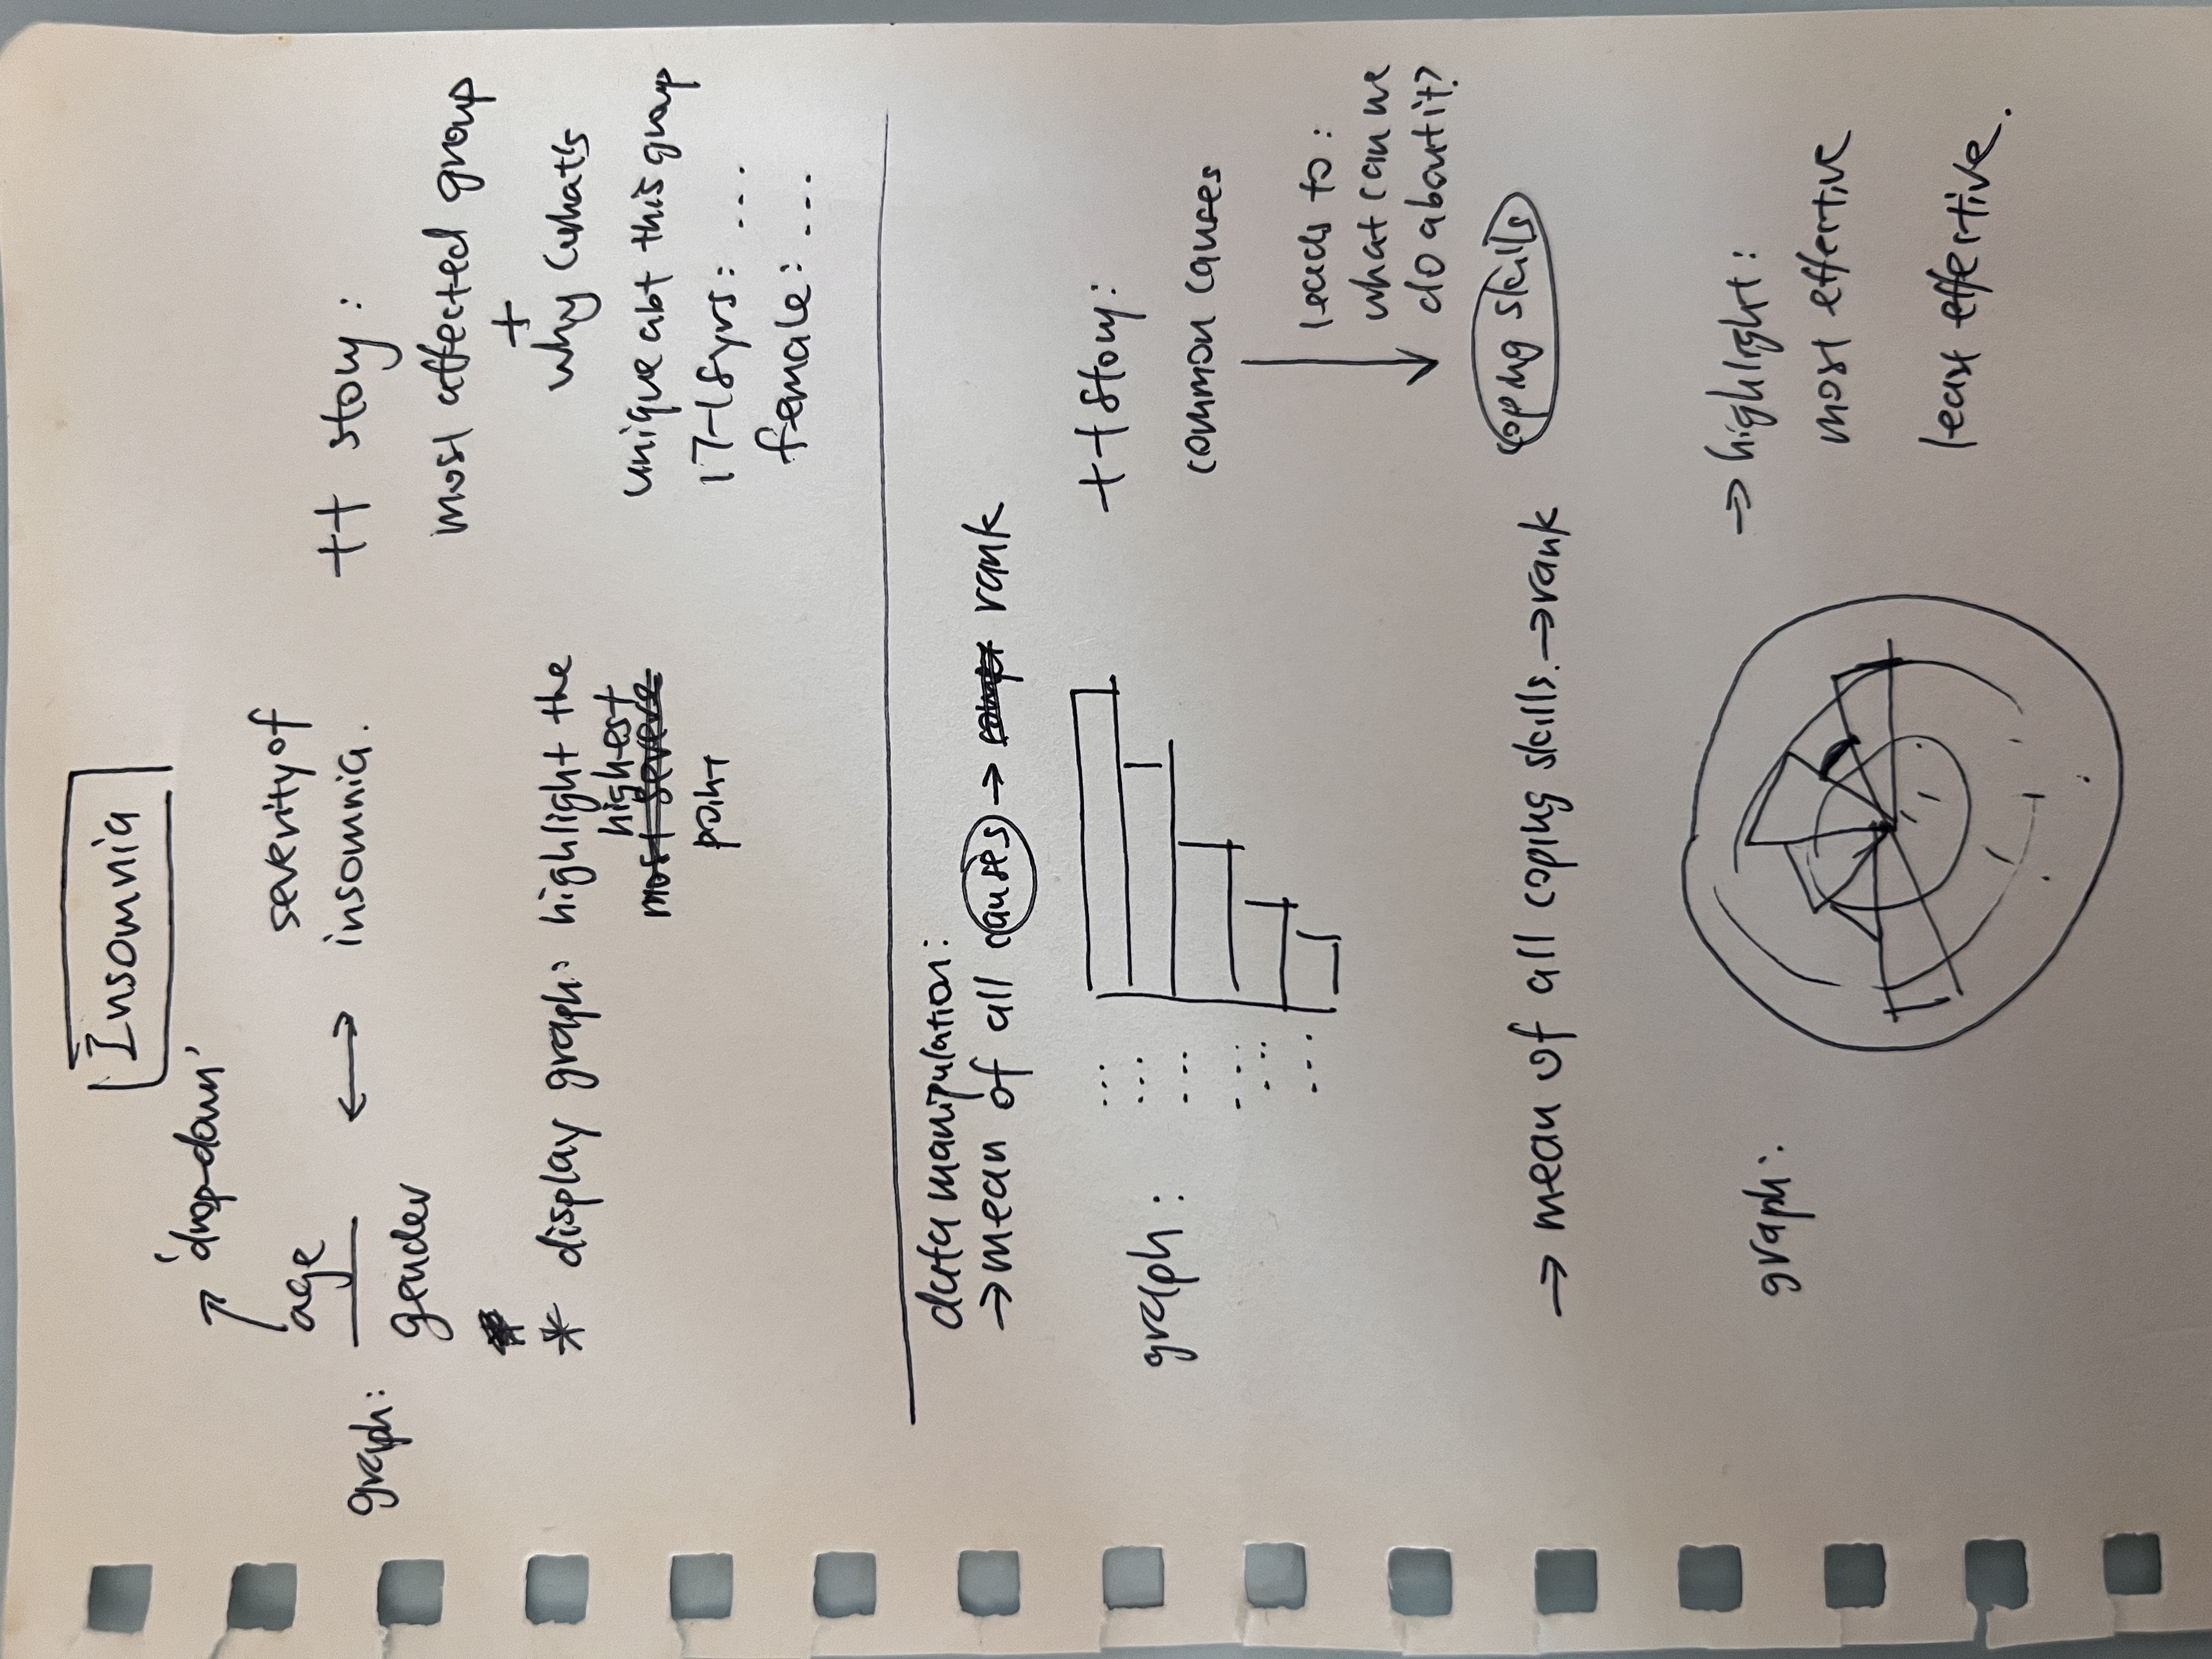 Insomnia
'drop-down'
age
graph:
gender
↔
severity of
insomnia.
* display graph: highlight the
highest
most severe
point
++ story:
most affected group
+
why (what's
unique abt this group
17-18yrs: ...
female: ...
data manipulation:
→ mean of all causes → rank
graph:
...
...
...
...
...
...
++ story:
common causes
leads to:
what can we
do about it?
coping skills
→ mean of all coping skills. → rank
graph:
→ highlight:
most effective
least effective.